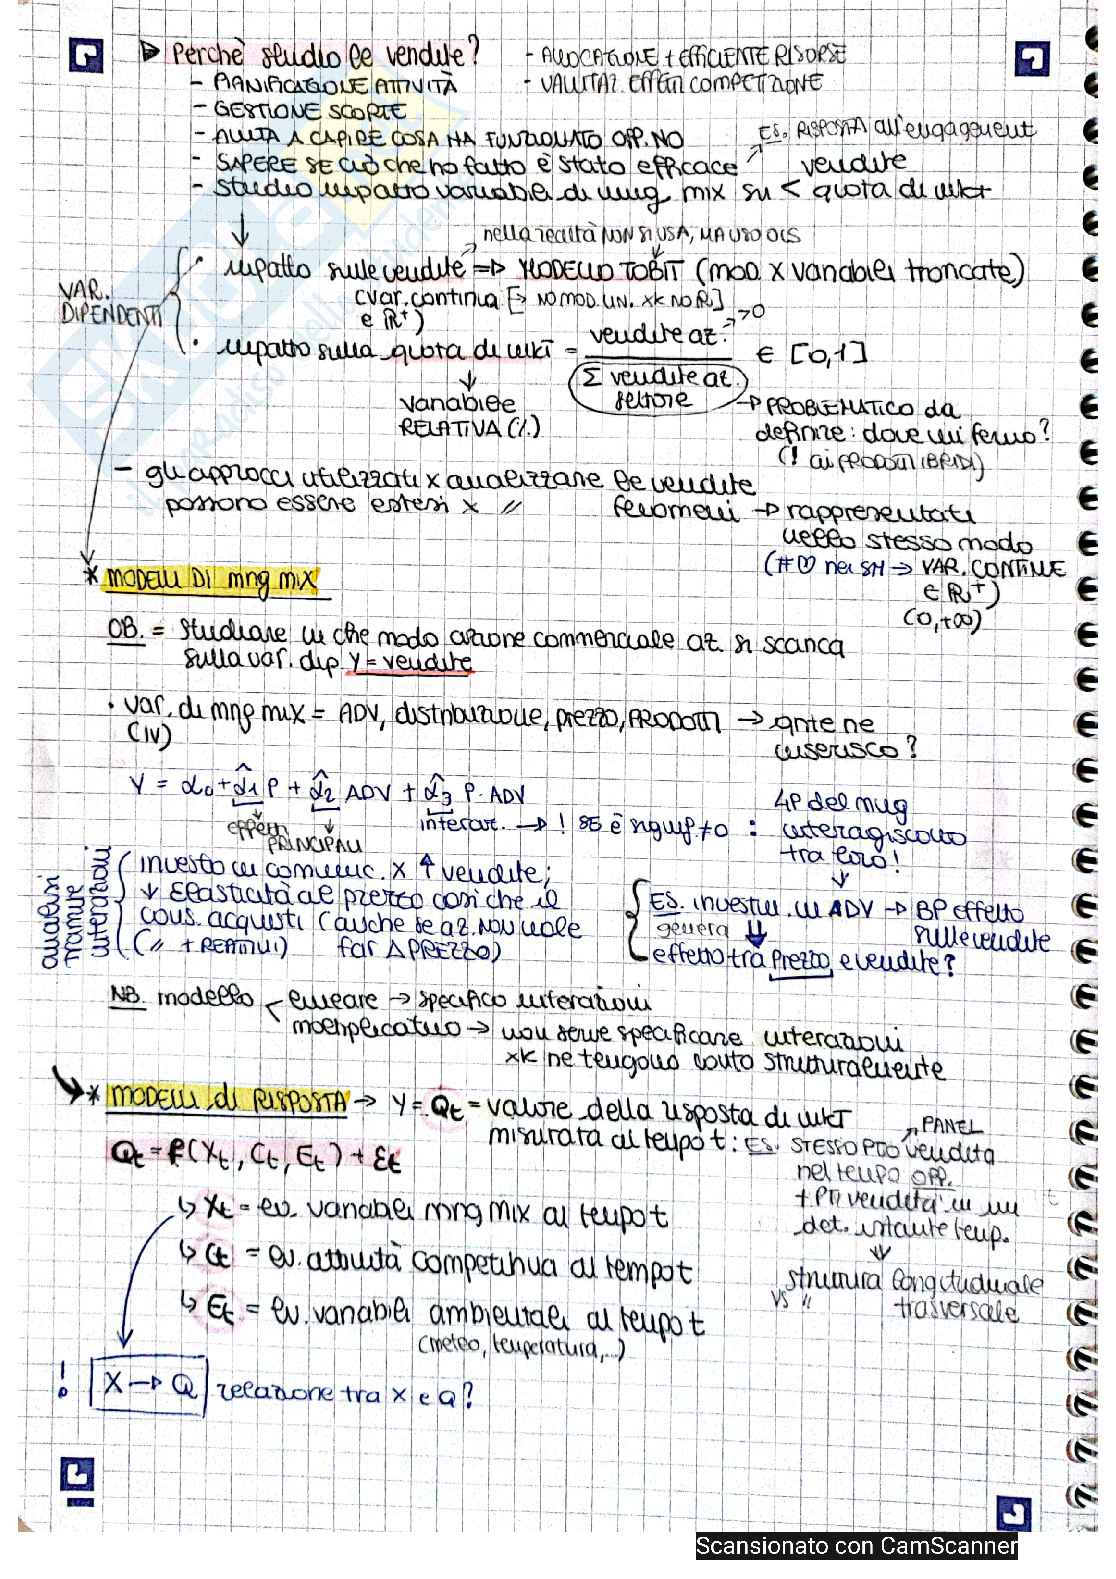 ▷ Perchè studio le vendite?
- PIANIFICAZIONE ATTIVITÀ
- GESTIONE SCORTE
- AIUTA A CAPIRE COSA HA FUNZIONATO OPP. NO
- SAPERE SE CIÒ che ho fatto è stato efficace
- Studio impatto variabili di mng mix su < vendite
quota di mkt
- ALLOCAZIONE + EFFICIENTE RISORSE
- VALUTAZ. EFFETTI COMPETIZIONE
ES. RISPOSTA all'engagement
VAR. DIPENDENTI
nella realtà NON SI USA, MA USO OLS
• impatto sulle vendite => MODELLO TOBIT (mod. x variabili troncate)
(var. continua [→ NO MOD. LIN. xk NO R]
e ℝ⁺)
• impatto sulla quota di mkt = vendite az. → >0
Σ vendite az. settore
∈ [0,1]
↓
variabile
RELATIVA (%)
→ PROBLEMATICO da
definire: dove mi fermo?
(! ai PRODOTTI IBRIDI)
- gli approcci utilizzati x analizzare le vendite
possono essere estesi x // fenomeni → rappresentati
nello stesso modo
(# ♡ nei SM → VAR. CONTINUE
∈ ℝ⁺)
(0,+∞)
* MODELLI DI mng mix
OB. = studiare in che modo azione commerciale az. si scarica
sulla var. dip. Y = vendite
• var. di mng mix = ADV, distribuzione, prezzo, PRODOTTI → qnte ne
(IV) inserisco?
Y = α₀ + α̂₁ P + α̂₂ ADV + α̂₃ P·ADV
effetti PRINCIPALI
interaz. → ! SE è signif. ≠0 :
4P del mng
interagiscono
tra loro!
analisi tramite interazioni
investo in comunic. x ↑ vendite;
↓ elasticità al prezzo così che il
cons. acquisti (anche se az. NON vuole
(// + REATTIVI) far Δ PREZZO)
ES. investim. in ADV → BP effetto
sulle vendite
genera ⇓
effetto tra prezzo e vendite?
NB. modello < lineare → specifico interazioni
moltiplicativo → non serve specificare interazioni
xk ne tengono conto strutturalmente
* MODELLI di RISPOSTA → Y = Qt = valore della risposta di mkt
misurata al tempo t: ES. STESSO PTO vendita
PANEL
nel tempo OPP.
+ PTI vendita in un
det. istante temp.
↓
struttura longitudinale
vs // trasversale
Qt = f(Xt, Ct, Et) + εt
↳ Xt = ev. variabili mng mix al tempo t
↳ Ct = ev. attività competitiva al tempo t
↳ Et = ev. variabili ambientali al tempo t
(meteo, temperatura,...)
! X → Q relazione tra X e Q?
Scansionato con CamScanner